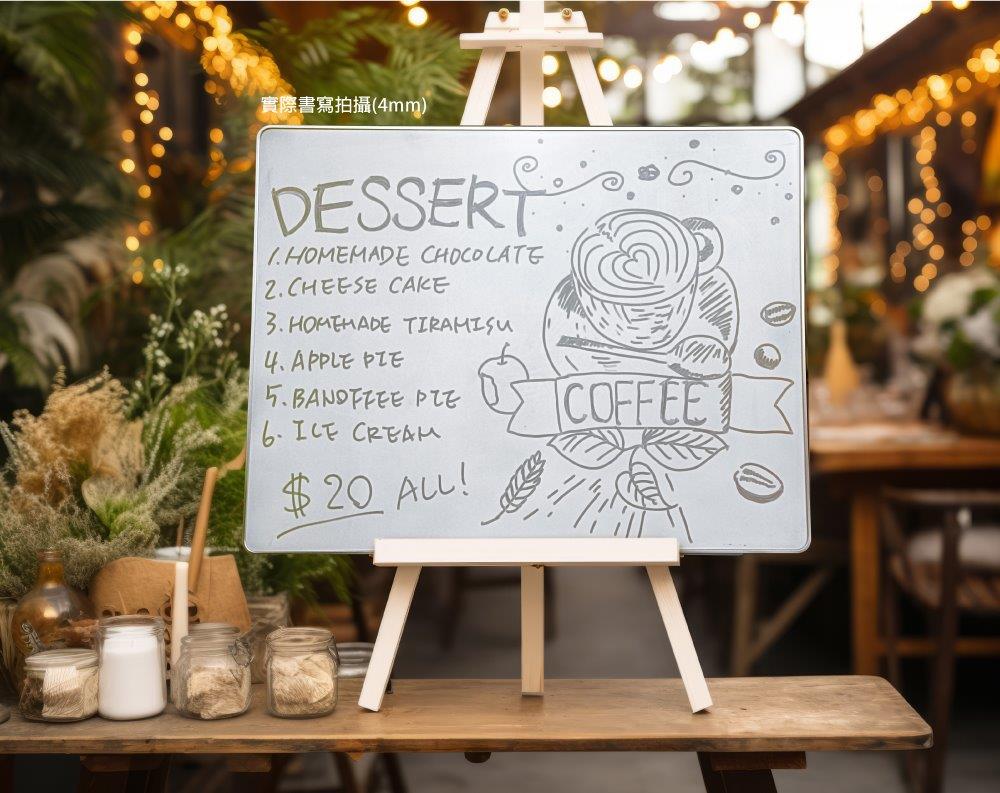 實際書寫拍攝(4mm)
DESSERT
1. HOMEMADE CHOCOLATE
2. CHEESE CAKE
3. HOMEMADE TIRAMISU
4. APPLE PIE
5. BANOFFEE PIE
6. ICE CREAM
$20 ALL!
COFFEE